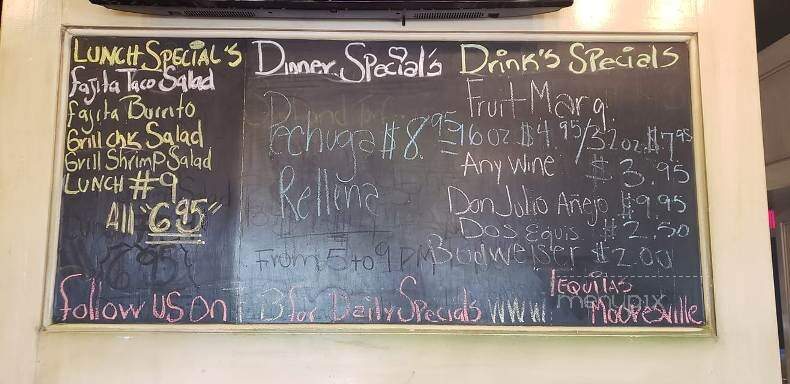 LUNCH SPECIAL'S
Fajita Taco Salad
Fajita Burrito
Grill chk Salad
Grill Shrimp Salad
LUNCH #9
All "6.95"
Dinner Special's
Pechuga $8.95
Rellena
From 5 to 9 PM
Drink's Specials
Fruit Marg.
16 oz $4.95/32 oz. $7.95
Any Wine $3.95
Don Julio Añejo $9.95
Dos Equis $2.50
Budweiser $2.00
Follow us On FB for Daily Specials WWW.
TEQUILAS
Mooresville
menupix